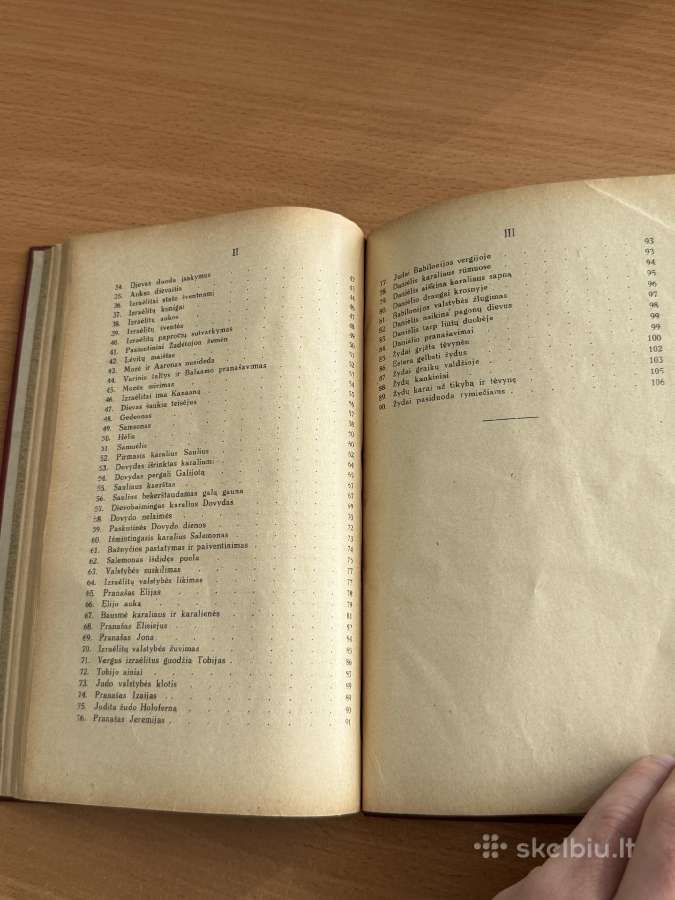 II
34. Dievas duoda įsakymus
35. Aukso dievaitis
36. Izraėlitai stato šventnamį
37. Izraėlitų kunigai
38. Izraėlitų aukos
39. Izraėlitų šventės
40. Izraėlitų papročių sutvarkymas
41. Pasiuntiniai Žadėtojon žemėn
42. Lėvitų maištas
43. Mozė ir Aaronas nusideda
44. Varinis žaltys ir Balaamo pranašavimas
45. Mozės mirimas
46. Izraėlitai ima Kanaaną
47. Dievas šaukia teisėjus
48. Gedeonas
49. Samsonas
50. Hėlis
51. Samuėlis
52. Pirmasis karalius Saulius
53. Dovydas išrinktas karalium
54. Dovydas pergali Galijotą
55. Sauliaus kerštas
56. Saulius bekerštaudamas galą gauna
57. Dievobaimingas karalius Dovydas
58. Dovydo nelaimės
59. Paskutinės Dovydo dienos
60. Išmintingasis karalius Salemonas
61. Bažnyčios pastatymas ir pašventinimas
62. Salemonas išdidęs puola
63. Valstybės suskilimas
64. Izraėlitų valstybės likimas
65. Pranašas Elijas
66. Elijo auka
67. Bausmė karaliaus ir karalienės
68. Pranašas Elisiejus
69. Pranašas Jona
70. Izraėlitų valstybės žuvimas
71. Vergus izraėlitus guodžia Tobijas
72. Tobijo ainiai
73. Judo valstybės klotis
74. Pranašas Izaijas
75. Judita žudo Holoferną
76. Pranašas Jeremijas 91
III
77. Judai Babilonijos vergijoje 93
78. Daniėlis karaliaus rūmuose 93
79. Daniėlis aiškina karaliaus sapną 94
80. Daniėlio draugai krosnyje 95
81. Babilonijos valstybės žlugimas 96
82. Daniėlis naikina pagonų dievus 97
83. Daniėlis tarp liūtų duobėje 98
84. Daniėlio pranašavimai 99
85. Žydai grįžta tėvynėn 99
86. Estera gelbsti žydus 100
87. Žydai graikų valdžioje 102
88. Žydų kankiniai 103
89. Žydų karai už tikybą ir tėvynę 105
90. Žydai pasiduoda rymiečiams 106
skelbiu.lt